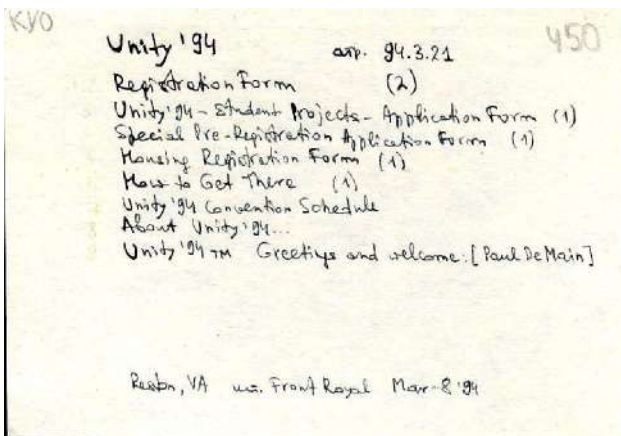 KYO
450
Unity '94 arr. 94.3.21
Registration Form (2)
Unity '94 - Student Projects - Application Form (1)
Special Pre-Registration Application Form (1)
Housing Registration Form (1)
How to Get There (1)
Unity '94 Convention Schedule
About Unity '94...
Unity '94 TM Greetings and welcome: [Paul DeMain]
Reston, VA Front Royal Mar-8 '94